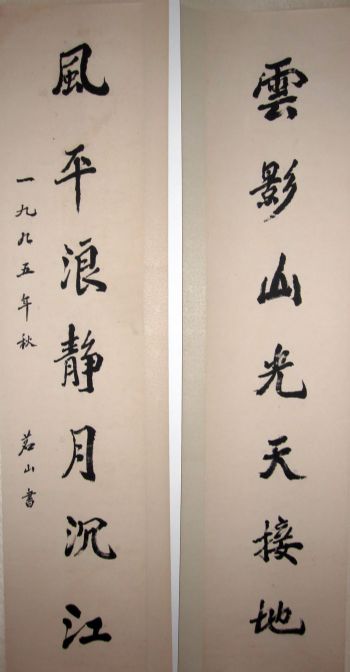 雲影山光天接地
風平浪静月沉江
一九九五年秋 茗山書